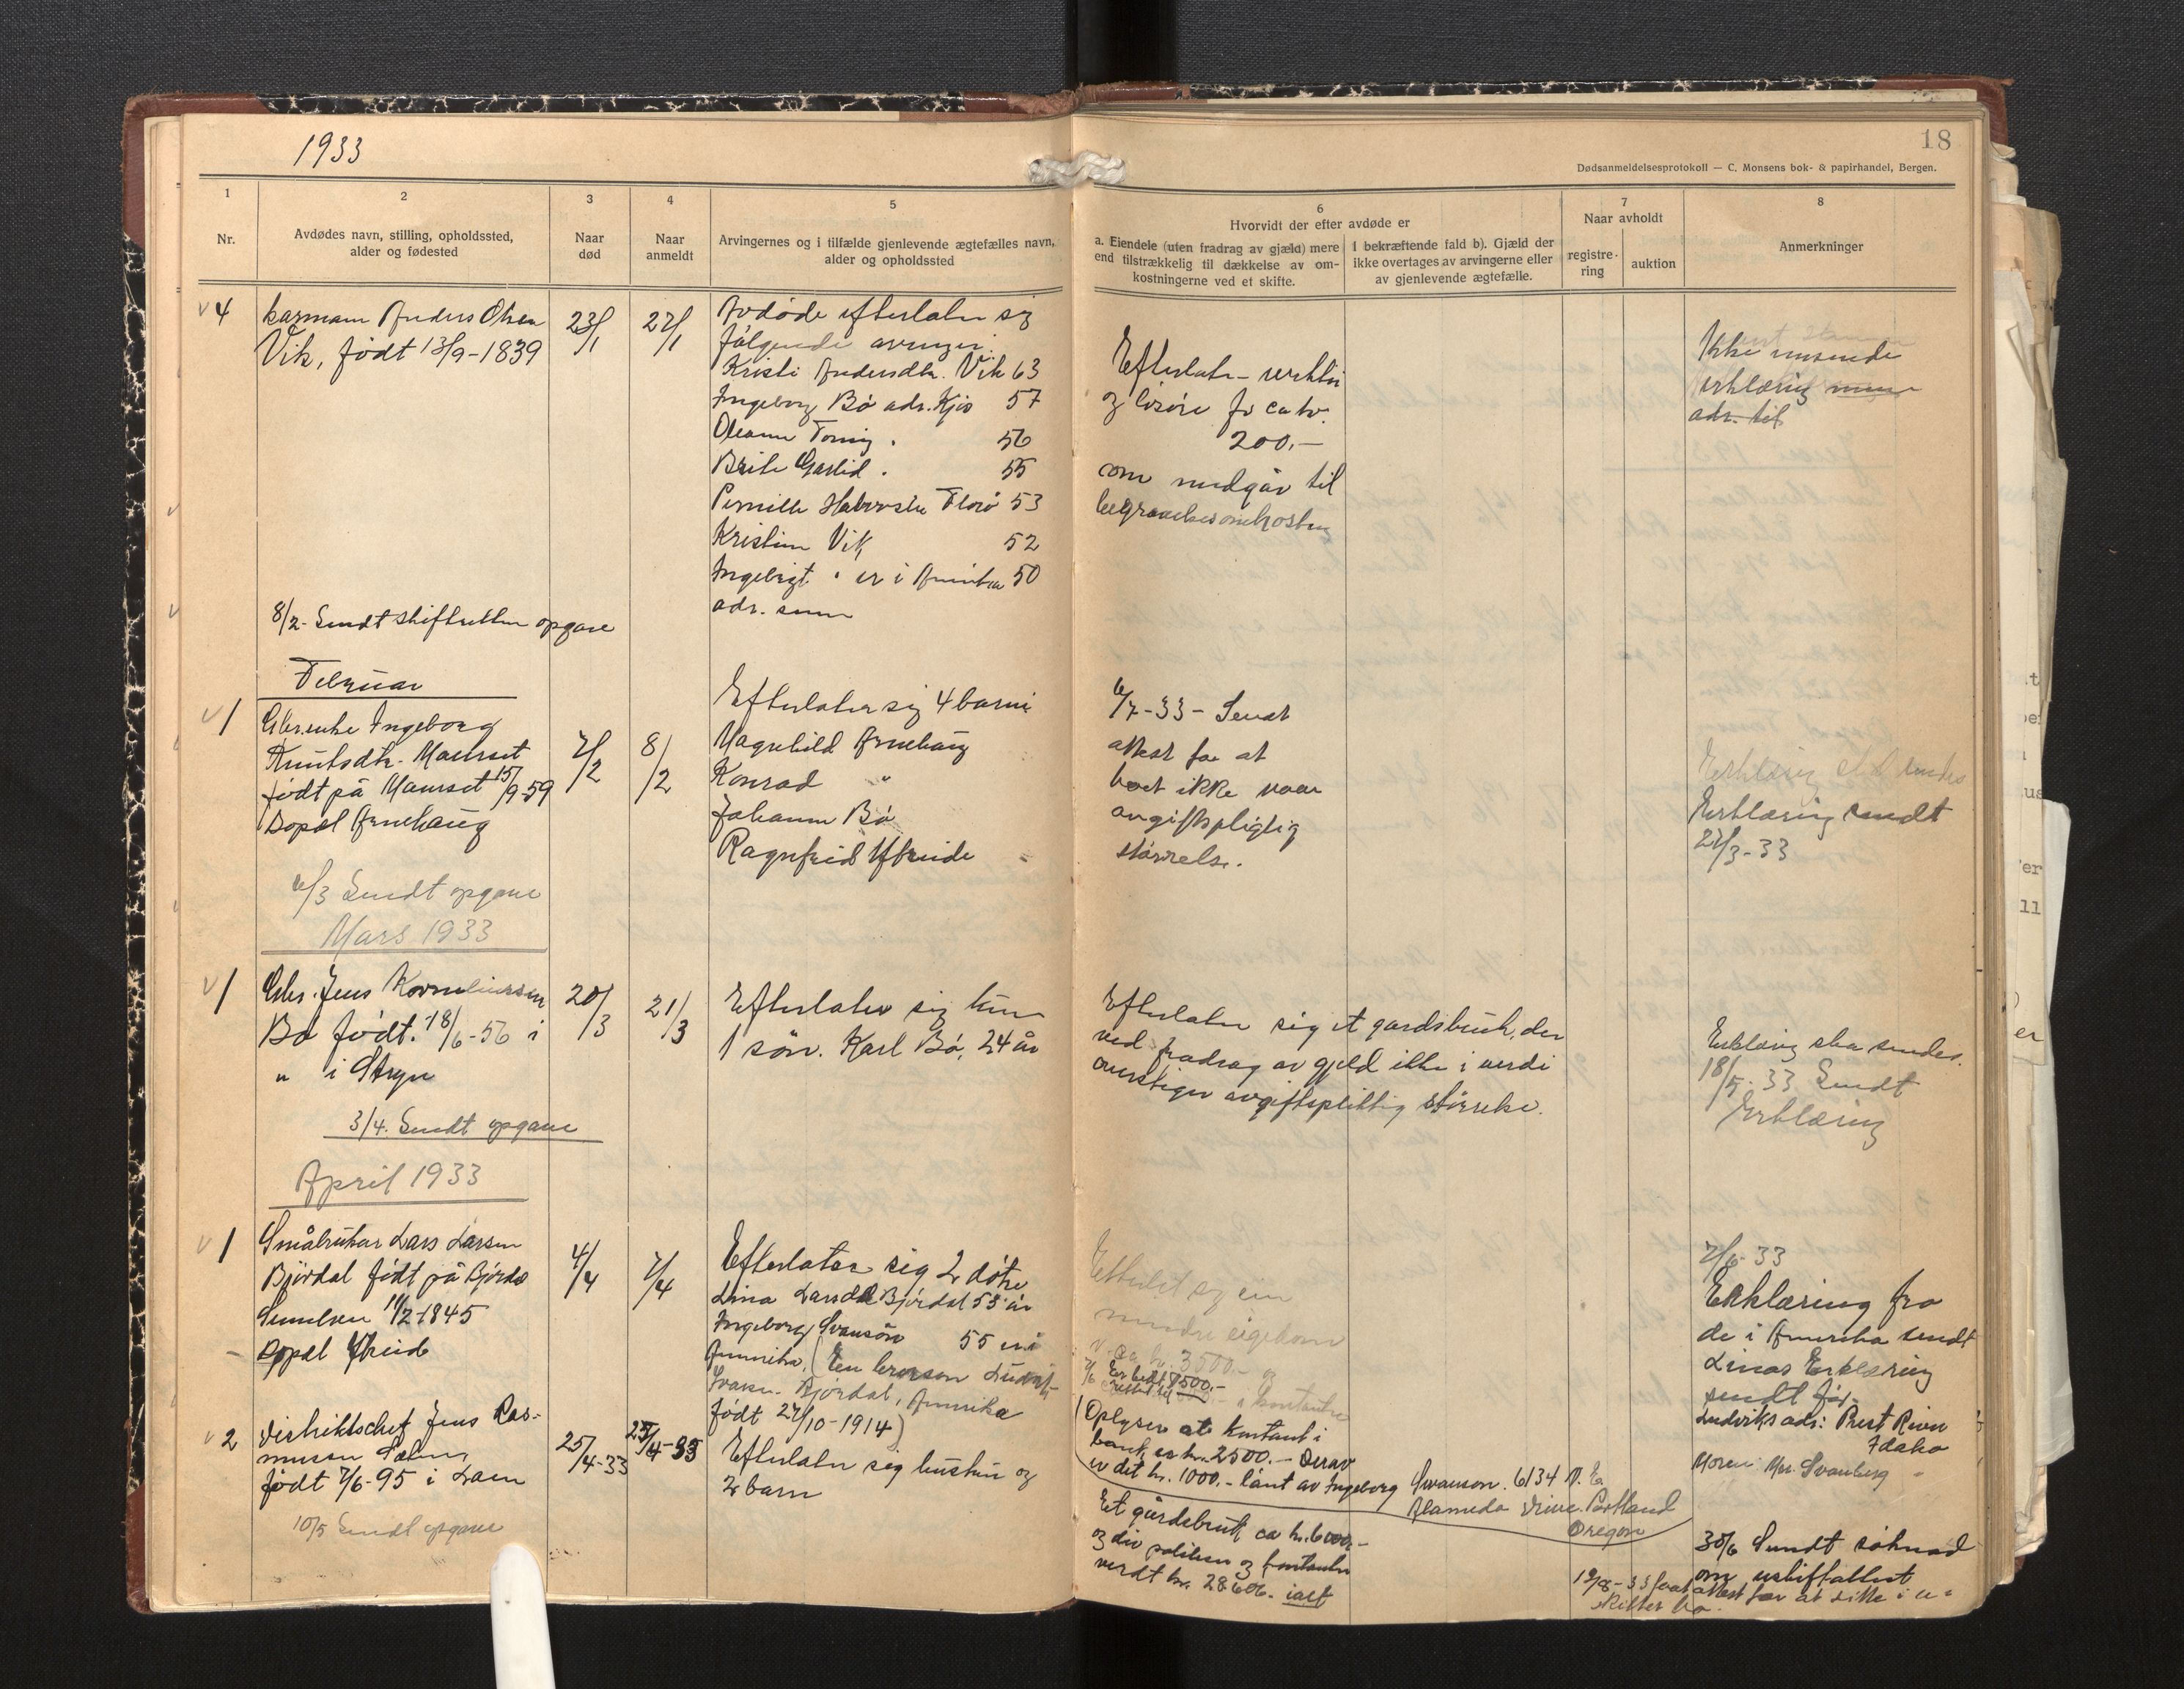 1933
18
Dødsanmeldelsesprotokoll — C. Monsens bok- & papirhandel, Bergen.
1
Nr.
2
Avdødes navn, stilling, opholdssted,
alder og fødested
3
Naar
død
4
Naar
anmeldt
5
Arvingernes og i tilfælde gjenlevende ægtefælles navn,
alder og opholdssted
6
Hvorvidt der efter avdøde er
a. Eiendele (uten fradrag av gjæld) mere
end tilstrækkelig til dækkelse av om-
kostningerne ved et skifte.
I bekræftende fald b). Gjæld der
ikke overtages av arvingerne eller
av gjenlevende ægtefælle.
7
Naar avholdt
registre-
ring
auktion
8
Anmerkninger
4
Anders Olsen
Vik, født 13/9-1839
23/1
27/1
Avdöde efterlater sig
fölgende arvinger:
Kristi Andersdtr. Vik 63
Ingeborg Bö adr. Kjös 57
Oleanna Tonning " 56
Brite Garlid " 55
Pernille Florö 53
Kristine Vik 52
Ingebrigt " er i Amerika 50
adr. samme
Efterlater
og lösöre for ca kr.
200,-
som medgår til
begravelsesomkostn
Ikke innsende
erklæring
adr. til
8/2- Sendt skifteretten opgave
Februar
1
Gbr.enke Ingeborg
Knutsdtr. Maurset
født på Maurset 15/9-59
Bopæl Årnehaug
7/2
8/2
Efterlater sig 4 barn:
Magnhild Årnehaug
Konrad "
Johanne Bö
Ragnfrid Ytreeide
6/7-33- Sendt
attest for at
boet ikke var
avgiftspligtig
størrelse.
Erklæring skal sendes
Erklæring sendt
27/3-33
6/3 Sendt opgave
Mars 1933
1
Gbr. Jens Korneliussen
Bö født 18/6-56 i
" i Stryn
20/3
21/3
Efterlater sig kun
1 sön. Karl Bö, 24 år
Efterlater sig et gardsbruk, der
ved fradrag av gjeld ikke i verdi
overstiger avgiftspliktig störrelse.
Erklæring ska sendes.
18/5-33 Sendt
Erklæring
3/4. Sendt opgave
April 1933
1
Småbruker Lars Larsen
Björdal født på Björdal
Sunelven 11/2-1845
Bopæl
4/4
7/4
Efterlater sig 2 døtre
Lina Larsdtr Björdal 53 år
Ingeborg Svansön 55 er i
Amerika, (En
Björdal, Amerika
født 27/10-1914)
mindre eigedom
v. ca kr. 3500.- og
(Oplyser at kontant i
bank er kr. 2500.- Derav
er det kr. 1000.- lånt av Ingeborg Swanson. 6134 N. E.
Alameda Drive. Portland
Oregon
7/6-33
Erklæring fra
de i Amerika sendt
Linas Erklæring
sendt för.
Ludviks adr: Prest River
Idaho
Moren: Mrs. Svanberg
2
Distriktschef Jens Ras-
mussen
født 7/6-95 i Loen
25/4-33
25/4-33
Efterlater sig hustru og
2 barn
Et gårdsbruk ca kr. 6000,-
og div poliser og kontanter
verdt kr. 28606. ialt
30/6 Sendt söknad
om uskifteattest
19/8-33 attest for at sitte i u-
skiftet bo.
10/5 Sendt opgave